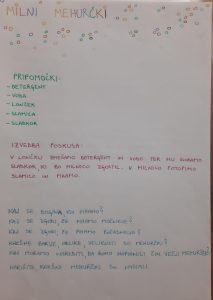 MILNI MEHURČKI
PRIPOMOČKI:
- DETERGENT
- VODA
- LONČEK
- SLAMICA
- SLADKOR
IZVEDBA POSKUSA:
V LONČKU ZMEŠAMO DETERGENT IN VODO TER MU DODAMO
SLADKOR, KI BO MILNICO ZGOSTIL. V MILNICO POTOPIMO
SLAMICO IN PIHAMO.
KAJ SE DOGAJA, KO PIHAMO?
KAJ SE ZGODI, ČE PIHAMO MOČNEJE?
KAJ SE ZGODI, ČE PIHAMO POČASNEJE?
KAKŠNE BARVE, OBLIKE, VELIKOSTI SO MEHURČKI?
KAJ MORAMO NAREDITI, DA BOMO NAPIHNILI ŠE VEČJI MEHURČEK?
NARIŠITE, KAKŠNE MEHURČKE STE